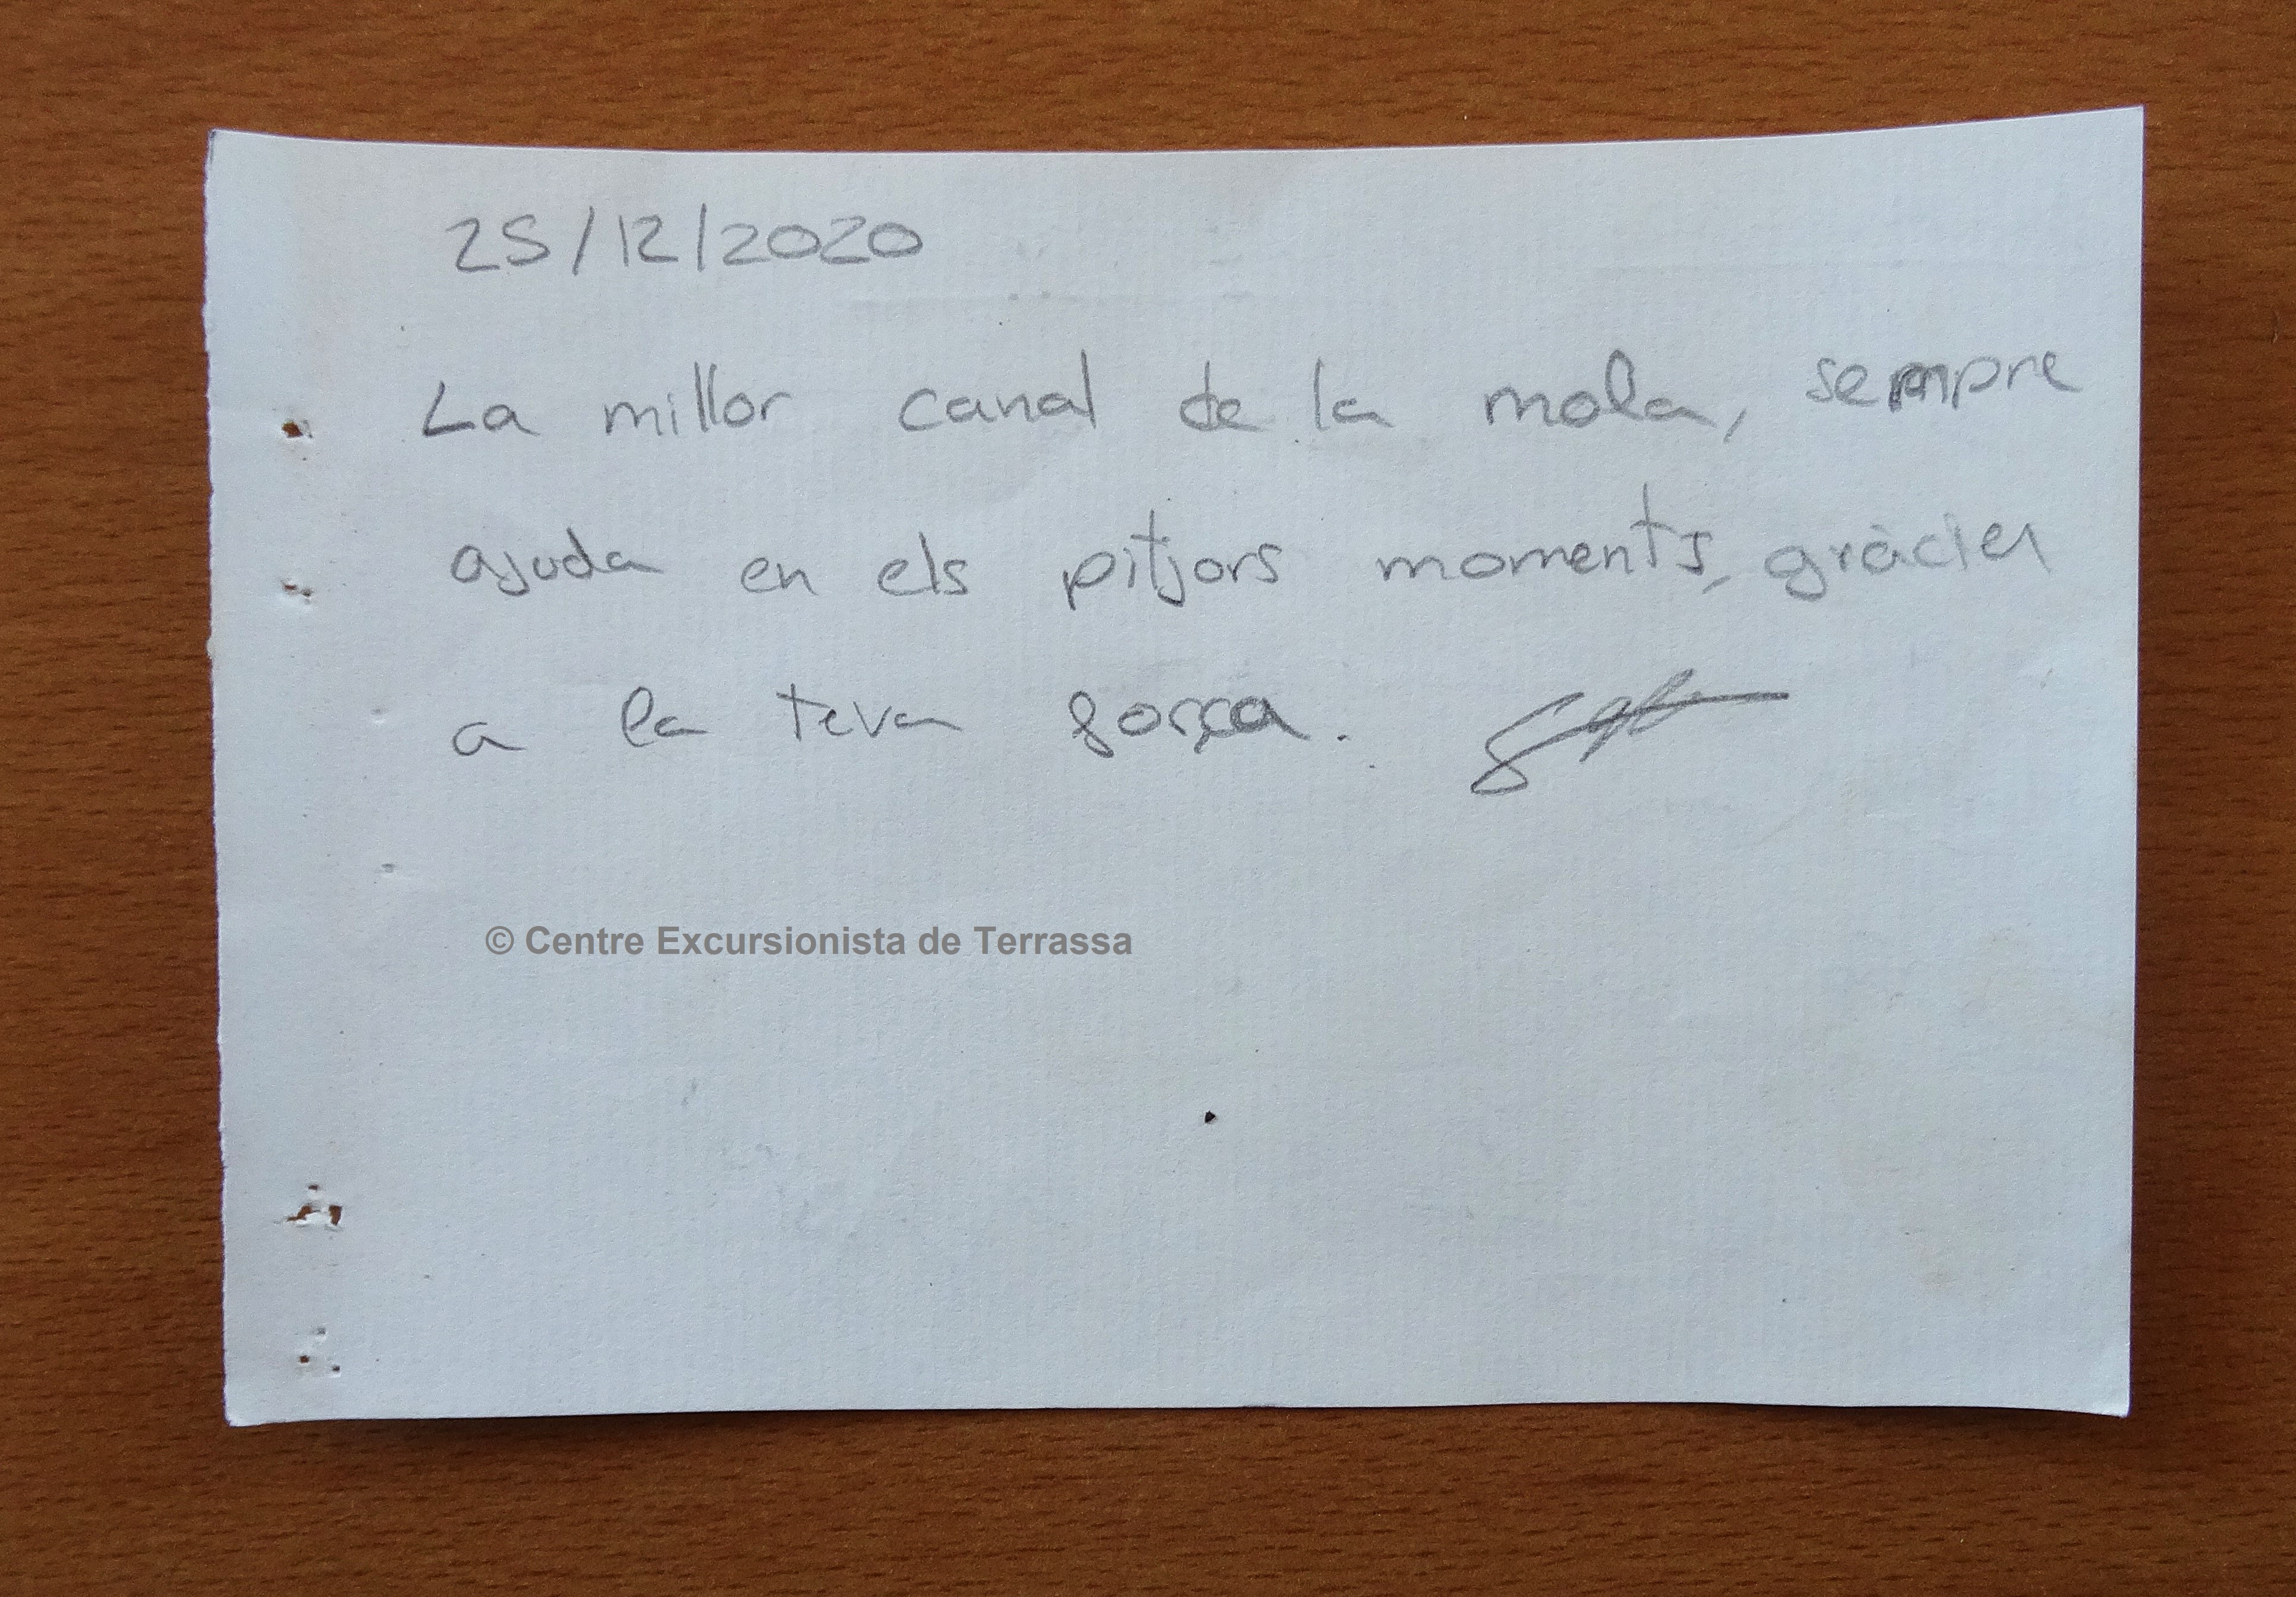 25/12/2020
La millor canal de la mola, sempre
ajuda en els pitjors moments, gràcies
a la teva força.
© Centre Excursionista de Terrassa